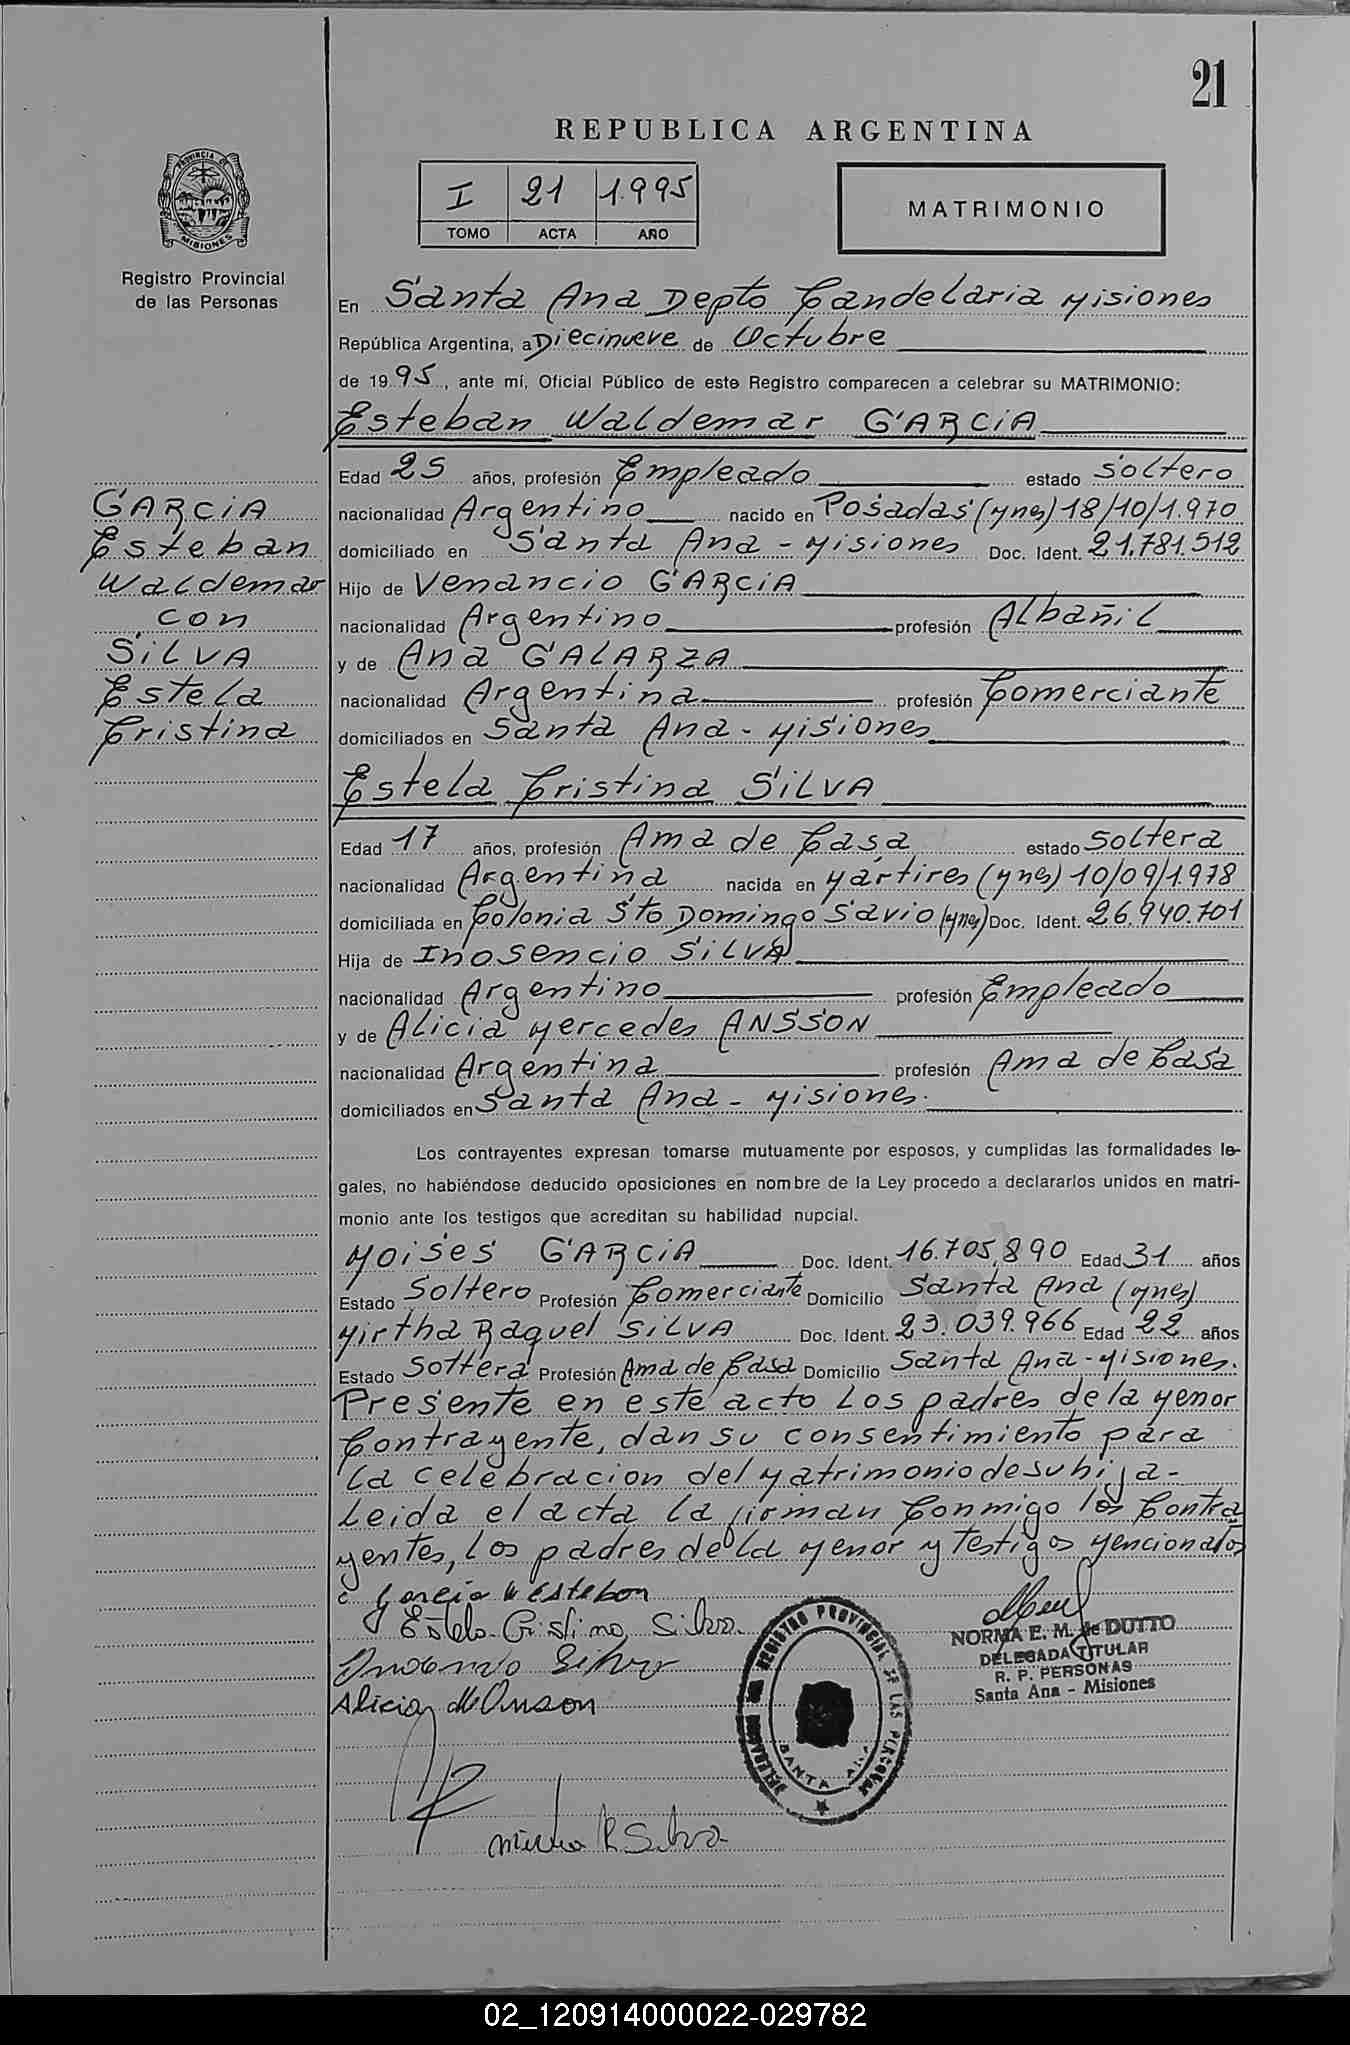 21
REPUBLICA ARGENTINA
I 21 1.995
TOMO ACTA AÑO
MATRIMONIO
PROVINCIA DE MISIONES
Registro Provincial
de las Personas
En Santa Ana Depto Candelaria Misiones
República Argentina, a Diecinueve de Octubre
de 1995, ante mí, Oficial Público de este Registro comparecen a celebrar su MATRIMONIO:
Esteban Waldemar GARCIA
Edad 25 años, profesión Empleado estado Soltero
nacionalidad Argentino nacido en Posadas (Mnes) 18/10/1.970
domiciliado en Santa Ana - Misiones Doc. Ident. 21.781.512
Hijo de Venancio GARCIA
nacionalidad Argentino profesión Albañil
y de Ana GALARZA
nacionalidad Argentina profesión Comerciante
domiciliados en Santa Ana - Misiones
GARCIA
Esteban
Waldemar
con
SILVA
Estela
Cristina
Estela Cristina SILVA
Edad 17 años, profesión Ama de Casa estado Soltera
nacionalidad Argentina nacida en Mártires (Mnes) 10/09/1.978
domiciliada en Colonia Sto Domingo Savio (Mnes) Doc. Ident. 26.940.701
Hija de Inosencio SILVA
nacionalidad Argentino profesión Empleado
y de Alicia Mercedes ANSSON
nacionalidad Argentina profesión Ama de Casa
domiciliados en Santa Ana - Misiones.
Los contrayentes expresan tomarse mutuamente por esposos, y cumplidas las formalidades le-
gales, no habiéndose deducido oposiciones en nombre de la Ley procedo a declararlos unidos en matri-
monio ante los testigos que acreditan su habilidad nupcial.
Moises GARCIA Doc. Ident. 16.705.890 Edad 31 años
Estado Soltero Profesión Comerciante Domicilio Santa Ana (Mnes)
Mirtha Raquel SILVA Doc. Ident. 23.039.966 Edad 22 años
Estado Soltera Profesión Ama de Casa Domicilio Santa Ana - Misiones.
Presente en este acto Los padres de la Menor
Contrayente, dan su consentimiento para
la celebracion del Matrimonio de su hija-
Leida el acta la firman Conmigo los Contra
yentes, Los padres de la Menor y Testigos Mencionados
Garcia W Esteban
Estela Cristina Silva
Inosencio Silva
Alicia M Anson
Mirtha R Silva
NORMA E. M. de DUTTO
DELEGADA TITULAR
R. P. PERSONAS
Santa Ana - Misiones
DELEGACION DEL REGISTRO PROVINCIAL DE LAS PERSONAS
SANTA ANA
02_120914000022-029782